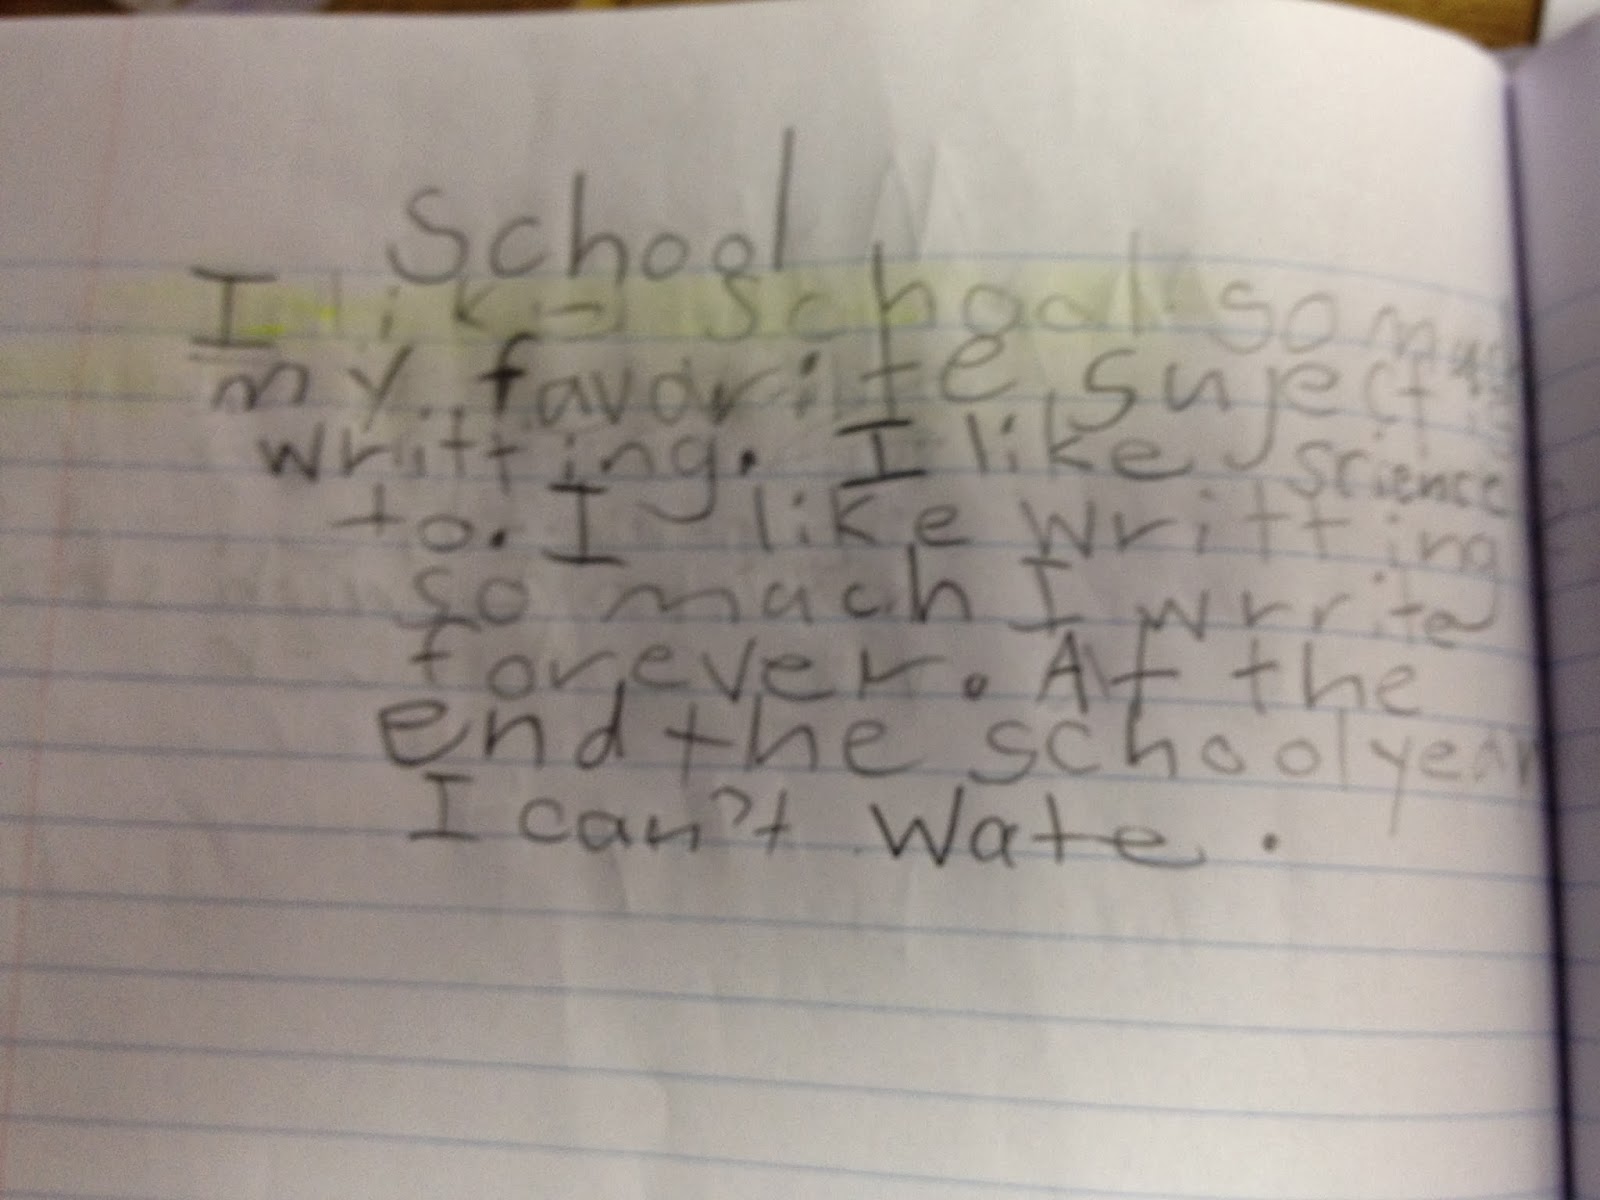 School
I like school so
my favorite suject is
writting. I like science
to. I like writting
so much I wrrite
forever. At the
end the school year
I can't wate.